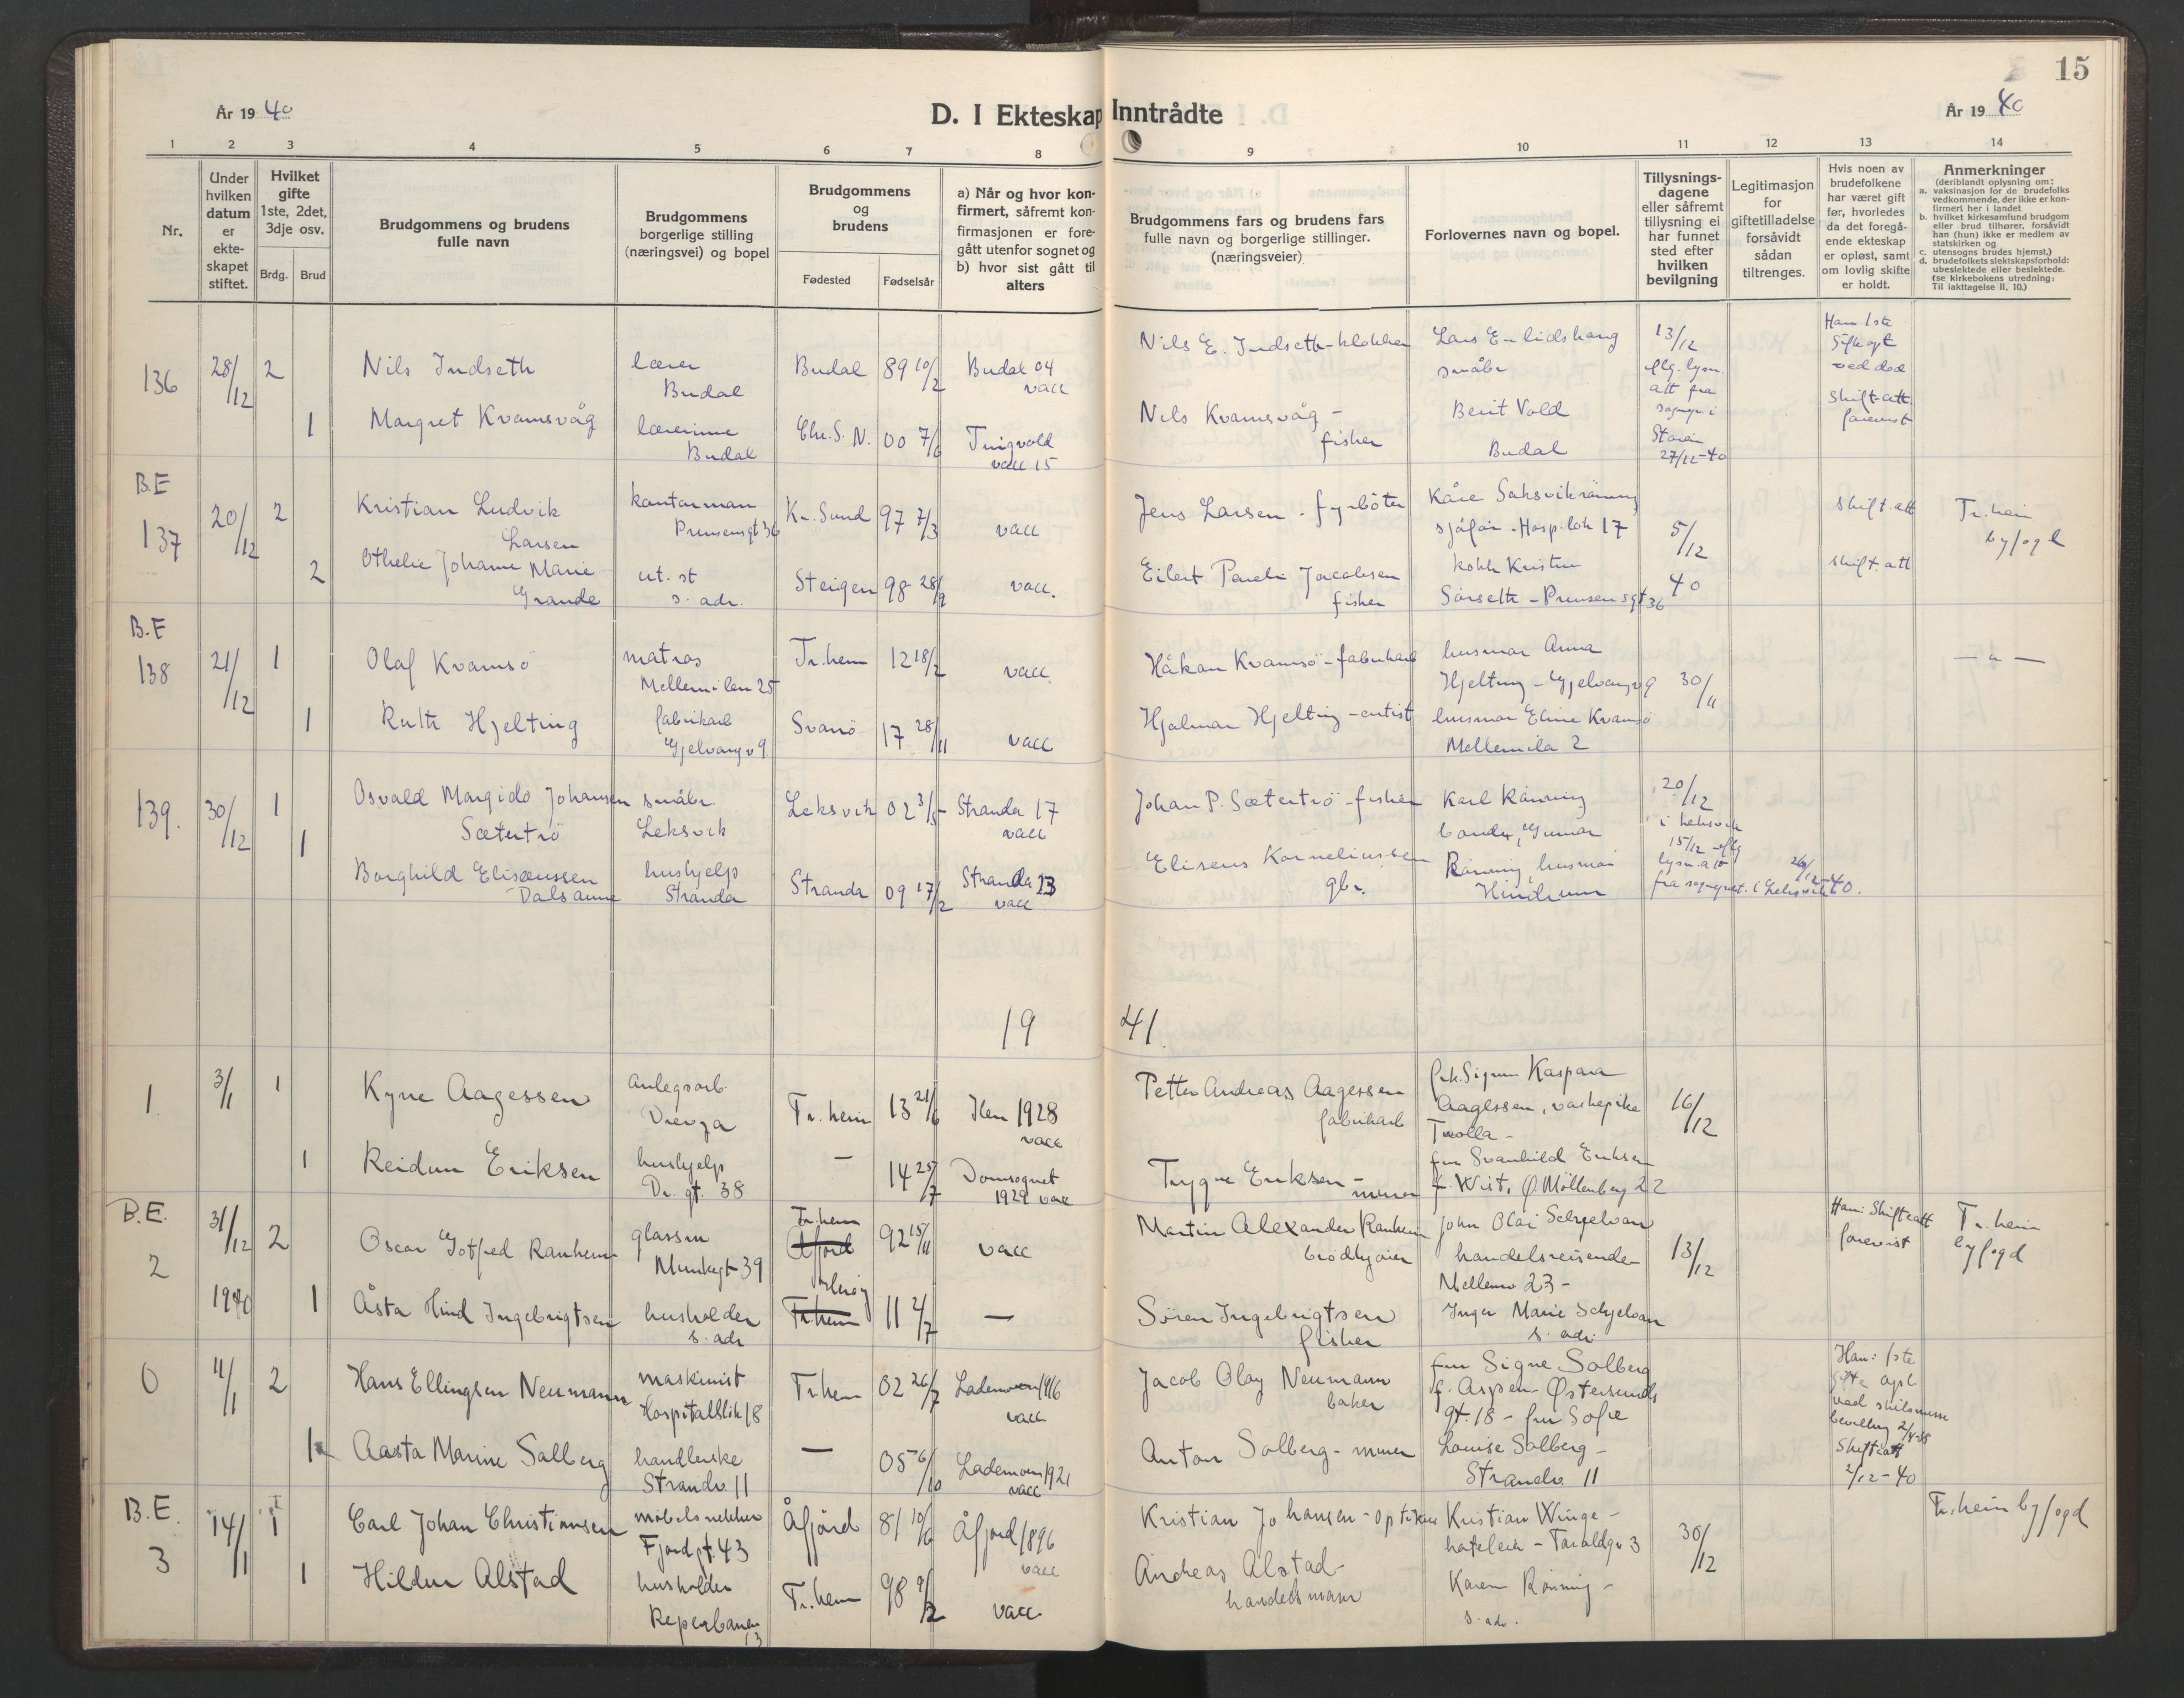 År 1940
D. I Ekteskap Inntrådte
År 1940
15
1 2 3 4 5 6 7 8 9 10 11 12 13 14
Nr.
Under hvilken datum er ekteskapet stiftet.
Hvilket gifte 1ste, 2det, 3dje osv.
Brdg. Brud
Brudgommens og brudens fulle navn
Brudgommens borgerlige stilling (næringsvei) og bopel
Brudgommens og brudens
Fødested Fødselsår
a) Når og hvor konfirmert, såfremt konfirmasjonen er foregått utenfor sognet og
b) hvor sist gått til alters
Brudgommens fars og brudens fars fulle navn og borgerlige stillinger. (næringsveier)
Forlovernes navn og bopel.
Tillysningsdagene eller såfremt tillysning ei har funnet sted efter hvilken bevilgning
Legitimasjon for giftetilladelse forsåvidt sådan tiltrenges.
Hvis noen av brudefolkene har været gift før, hvorledes da det foregående ekteskap er opløst, samt om lovlig skifte er holdt.
Anmerkninger
(deriblandt oplysning om:
a. vaksinasjon for de brudefolks vedkommende, der ikke er konfirmert her i landet
b. hvilket kirkesamfund brudgom eller brud tilhører, forsåvidt han (hun) ikke er medlem av statskirken og
c. utensogns brudes hjemst.)
d. brudefolkets slektskapsforhold: ubeslektede eller beslektede. (se kirkebokens utredning: Til iakttagelse II, 10.)
136 28/12 2 Nils Indseth lærer Budal Budal 89 10/2 Budal 04 vacc Nils E. Indseth - klokker Lars Enlidshaug småbr 13/12 Han 1ste gifte opl ved død
1 Margret Kvamsvåg lærerinne Budal Chr.S.N. 00 7/6 Tingvold vacc 15 Nils Kvamsvåg - fisker Berit Vold Budal 27/12-40 Skift. att. forevist
B.E
137 20/12 2 Kristian Ludvik Larsen kontorman Prinsensgt 36 Kr. Sund 97 7/3 vacc Jens Larsen - fyrbøter Kåre Saksvikrønning sjåfør - Hosp.løk 17 5/12 40 Skift. att Tr.heim byfogd
2 Othelie Johanne Marie Grande ut. st s. adr. Steigen 98 28/9 vacc. Eilert Jacobsen fisker kokk Kristin Sørseth - Prinsensgt 36 Skift. att
B.E
138 21/12 1 Olaf Kvamsö matros Mellemilen 25 Tr.heim 12 18/2 vacc. Håkon Kvamsö - fabrikarb husmor Anna Hjelting - Gjelvangv 9 30/11 — " —
1 Ruth Hjelting fabrikarb Gjelvangv 9 Svanö 17 28/11 vacc Hjalmar Hjelting - artist husmor Eline Kvamsö Mellemila 2
139. 30/12 1 Osvald Margido Johansen Sætertrö småbr. Leksvik Leksvik 02 3/5 - Stranda 17 vacc Johan P. Sætertrö - fisker Karl Rånning bonde, Gunnar 20/12 i Leksvik 15/12 - eflg
1 Borghild Eliseussen Dalsaune hushjelp Stranda Stranda 09 17/2 Stranda 23 vacc Eliseus Korneliussen gbr. Rånning, husmor Hindrum lysn.att fra sogneprt. i Leksvik 26/12-40.
1941.
1. 3/1 1 Kyrre Aagessen anlegsarb. Tr.heim 13 21/6 Ilen 1928 vacc Petter Andreas Aagessen fabrikarb frk. Sigrun Kaspara Aagessen, vaskepike Trolla - 16/12
1 Reidun Eriksen hushjelp Dr. gt. 38 — 14 25/7 Domsognet 1929 vacc Trygve Eriksen - murer fru Svanhild Eriksen f. Wist, Ø. Möllenberg 22
B.E.
2 31/12 1940 2 Oscar Gotfred Ranheim glassm Munkegt 39 Tr.heim Åfjord 92 15/11 vacc Martin Alexander Ranheim brödkjører John Olai Schjelvan handelsreisende - Mellemv 23 - 13/12 Han: Skifteatt forevist Tr.heim byfogd
1 Åsta Hind Ingebrigtsen husholder s. adr Tr.heim 11 2/7 — Sören Ingebrigtsen fisker Inger Marie Schjelvan s. adr
0 11/1 2 Hans Ellingsen Neumann maskinist Hospitalsløk 18 Tr.heim 02 26/7 Lademoen 1916 vacc Jacob Olay Neumann baker fru Signe Solberg f. Aspen - Østersundsgt. 18 - fru Sofie Han: 1ste gifte opl ved skilsmisse bevilling 2/4-38
1 Aasta Marine Solberg handlerske Strandv 11 — 05 6/10 Lademoen 1921 vacc Anton Solberg - murer Louise Solberg - Strandv 11 Skifteatt 2/12 - 40
B.E.
3 14/1 1 Carl Johan Christiansen möbelsnekker Fjordgt. 43 Åfjord 81 10/6 Åfjord 1896 vacc Kristian Johansen - optiker Kristian Winge - hoteleier - Taraldgv 3 30/12 Tr.heim byfogd
1 Hildur Alstad husholder Reperbanen 13 Tr.heim 98 9/2 vacc. Andreas Alstad - handelsmann Karen Rönning - s. adr.